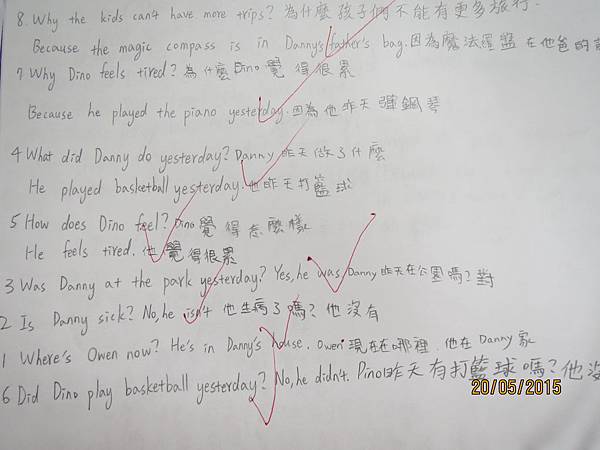 8 Why the kids can't have more trips? 為什麼孩子們不能有更多旅行.
Because the magic compass is in Danny's father's bag.因為魔法羅盤在他爸的
7 Why Dino feels tired? 為什麼Dino覺得很累
Because he played the piano yesterday.因為他昨天彈鋼琴
4 What did Danny do yesterday? Danny昨天做了什麼
He played basketball yesterday.他昨天打籃球
5 How does Dino feel? Dino覺得怎麼樣
He feels tired. 他覺得很累
3 Was Danny at the park yesterday? Yes, he was Danny昨天在公園嗎? 對
2 Is Danny sick? No, he isn't 他生病了嗎? 他沒有
1 Where's Owen now? He's in Danny's house. Owen現在在哪裡. 他在Danny家
6 Did Dino play basketball yesterday? No, he didn't. Dino昨天有打籃球嗎? 他沒
20/05/2015